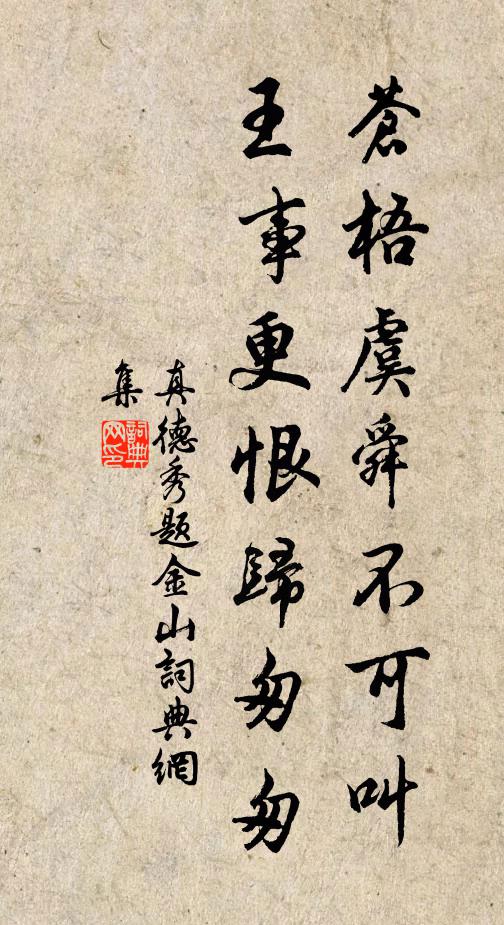 蒼梧虞舜不可叫
王事更恨歸匆匆
真德秀題金山詞典網
集
詞典網印